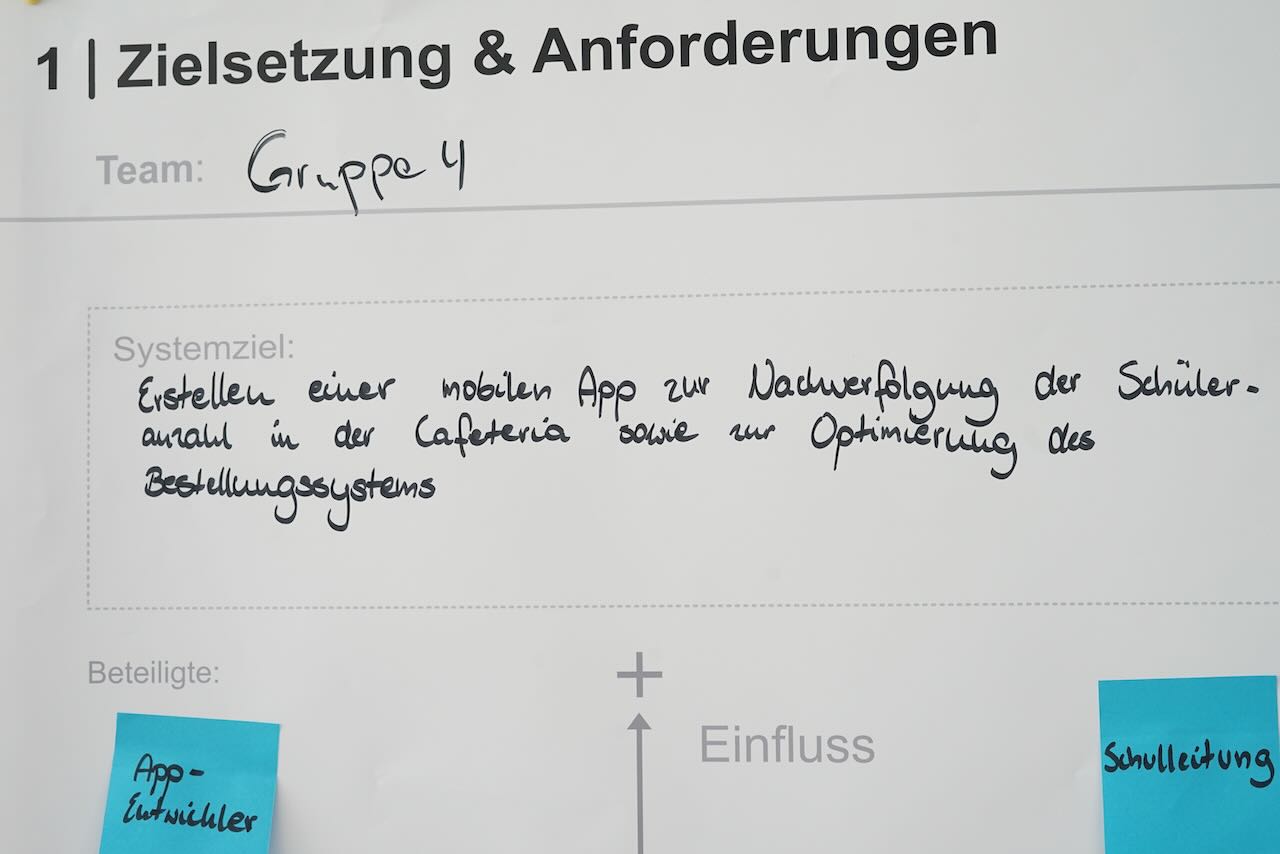 1 | Zielsetzung & Anforderungen
Team: Gruppe 4
Systemziel:
Erstellen einer mobilen App zur Nachverfolgung der Schüler-
anzahl in der Cafeteria sowie zur Optimierung des
Bestellungssystems
Beteiligte:
+
Einfluss
App-
Entwickler
Schulleitung